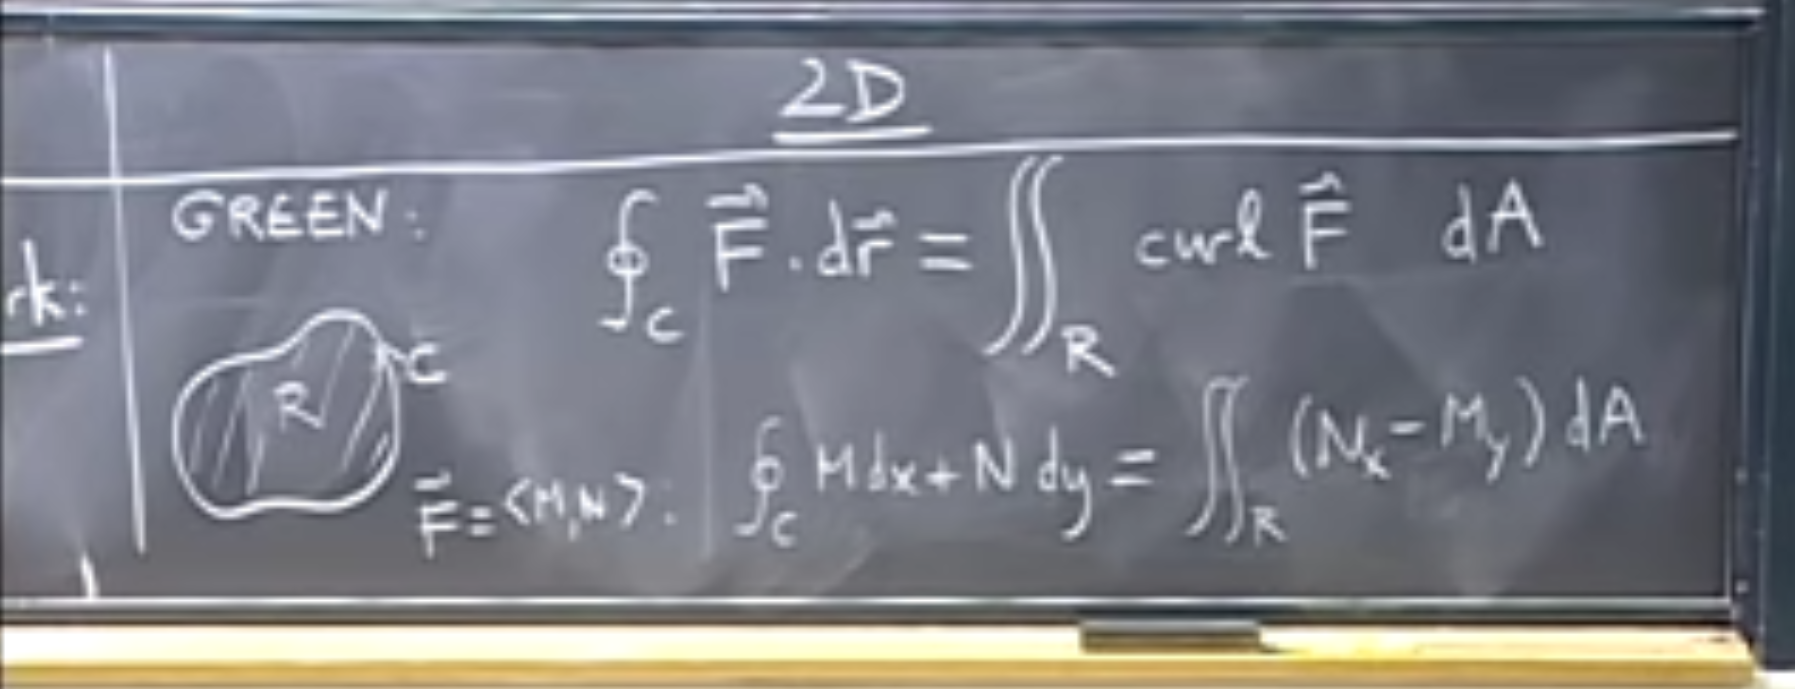 2D
GREEN: ∮_C F⃗ · dr⃗ = ∬_R curl F⃗ dA
rk:
C
R
F⃗ = <M,N>: ∮_C M dx + N dy = ∬_R (N_x - M_y) dA